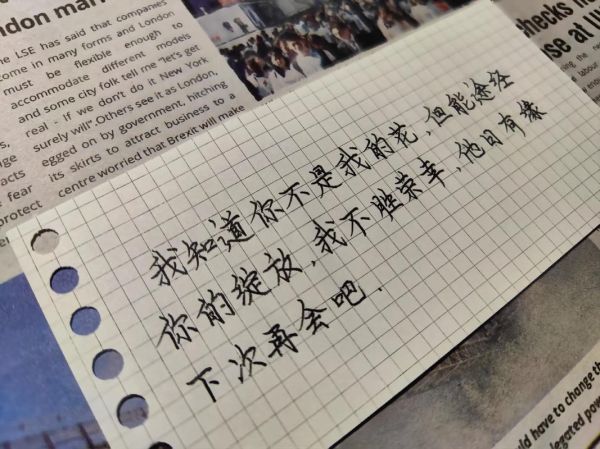 ndon mar
he LSE has said that companies
come in many forms and London
must be flexible enough to
accommodate different models
and some city folk tell me "let's get
real - if we don't do it New York
surely will". Others see it as London,
egged on by government, hitching
its skirts to attract business to a
centre worried that Brexit will make
ge
acts
fear
protect
checks ha
se at Lu
我知道你不是我的花，但能途经
你的绽放，我不胜荣幸，他日有缘
下次再会吧．
uld have to change th
legated pow